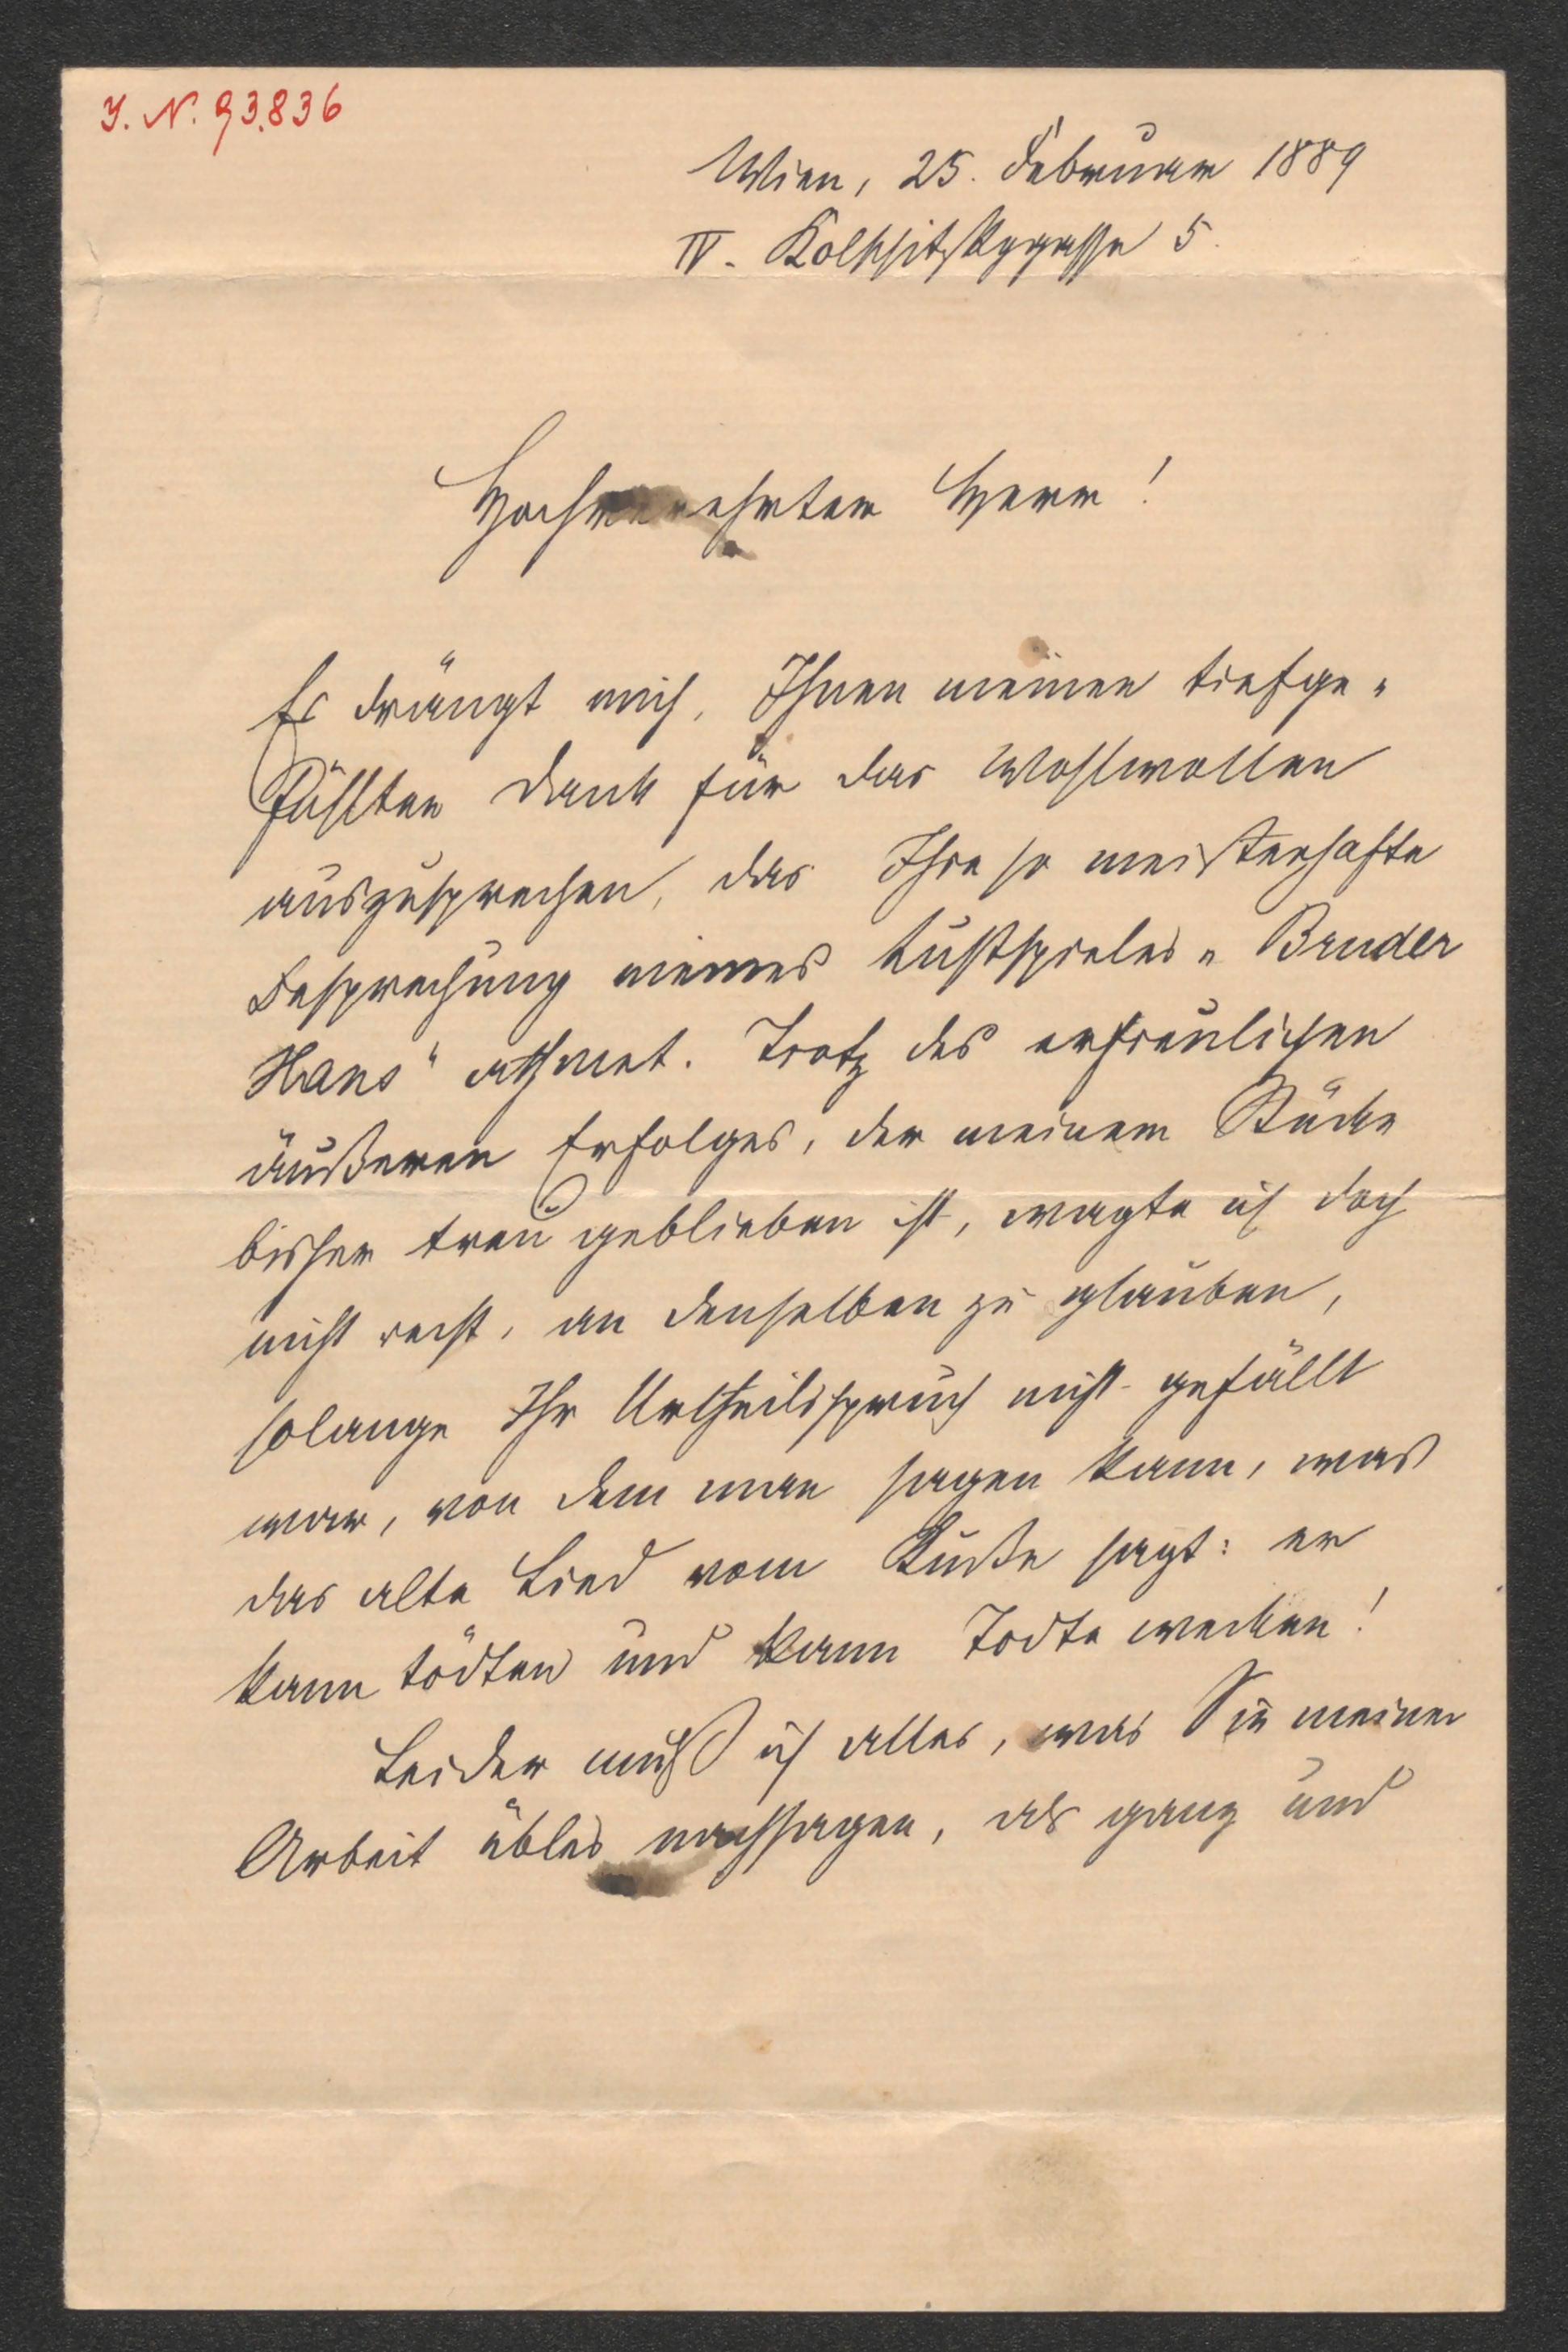 J. N. 93.836
Wien, 25. Februar 1889
IV. Kolschitzkygasse 5.
Hochverehrter Herr!
Es drängt mich, Ihnen meinen tiefge-
fühlten Dank für das Wohlwollen
auszusprechen, das Ihre so meisterhafte
Besprechung meines Lustspieles „Bruder
Hans" athmet. Trotz des erfreulichen
äußeren Erfolges, der meinem Stücke
bisher treu geblieben ist, wagte ich doch
nicht recht, an denselben zu glauben,
solange Ihr Urtheilsspruch nicht gefällt
war, von dem man sagen kann, was
das alte Lied vom Kuße sagt: er
kann tödten und kann Todte wecken!
Leider muß ich alles, was Sie meiner
Arbeit übles nachsagen, als ganz und